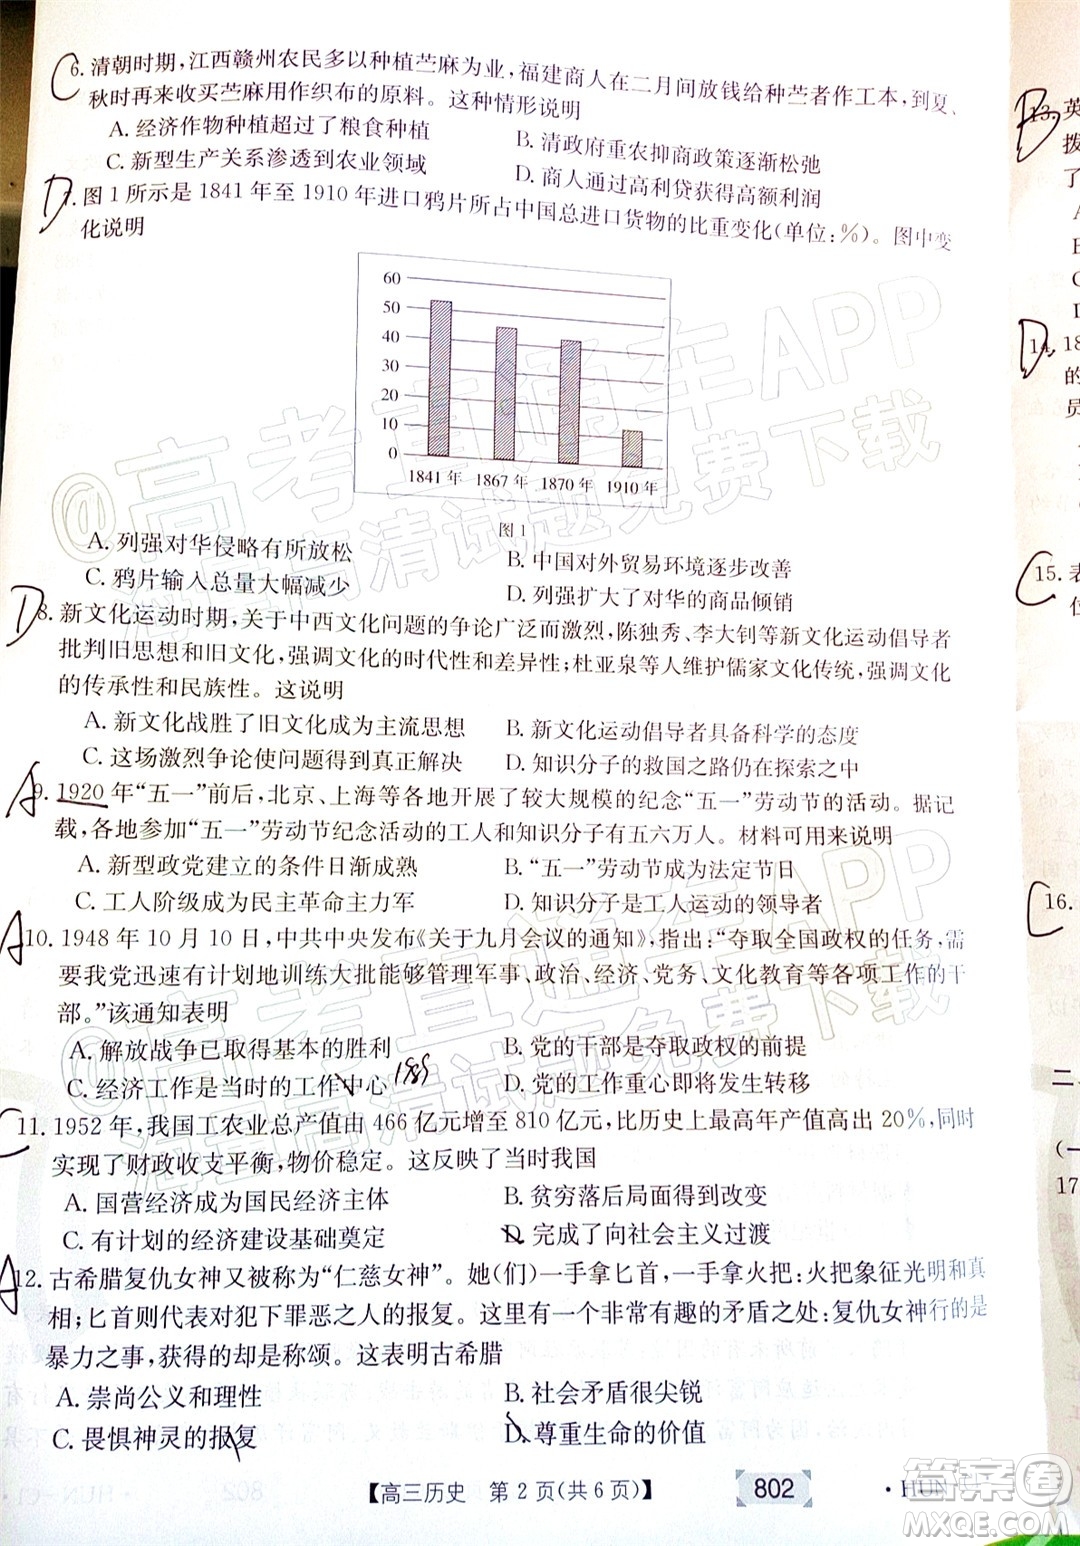 C
6. 清朝时期，江西赣州农民多以种植苎麻为业，福建商人在二月间放钱给种苎者作工本，到夏、
秋时再来收买苎麻用作织布的原料。这种情形说明
A. 经济作物种植超过了粮食种植
B. 清政府重农抑商政策逐渐松弛
C. 新型生产关系渗透到农业领域
D. 商人通过高利贷获得高额利润
D
7. 图 1 所示是 1841 年至 1910 年进口鸦片所占中国总进口货物的比重变化(单位：%)。图中变
化说明
60
50
40
30
20
10
0
1841 年 1867 年 1870 年 1910 年
图 1
A. 列强对华侵略有所放松
B. 中国对外贸易环境逐步改善
C. 鸦片输入总量大幅减少
D. 列强扩大了对华的商品倾销
D
8. 新文化运动时期，关于中西文化问题的争论广泛而激烈，陈独秀、李大钊等新文化运动倡导者
批判旧思想和旧文化，强调文化的时代性和差异性；杜亚泉等人维护儒家文化传统，强调文化
的传承性和民族性。这说明
A. 新文化战胜了旧文化成为主流思想
B. 新文化运动倡导者具备科学的态度
C. 这场激烈争论使问题得到了真正解决
D. 知识分子的救国之路仍在探索之中
A
9. 1920 年“五一”前后，北京、上海等各地开展了较大规模的纪念“五一”劳动节的活动。据记
载，各地参加“五一”劳动节纪念活动的工人和知识分子有五六万人。材料可用来说明
A. 新型政党建立的条件日渐成熟
B. “五一”劳动节成为法定节日
C. 工人阶级成为民主革命主力军
D. 知识分子是工人运动的领导者
A
10. 1948 年 10 月 10 日，中共中央发布《关于九月会议的通知》，指出：“夺取全国政权的任务，需
要我党迅速有计划地训练大批能够管理军事、政治、经济、党务、文化教育等各项工作的干
部。”该通知表明
A. 解放战争已取得基本的胜利
B. 党的干部是夺取政权的前提
C. 经济工作是当时的工作中心
D. 党的工作重心即将发生转移
C
11. 1952 年，我国工农业总产值由 466 亿元增至 810 亿元，比历史上最高年产值高出 20%，同时
实现了财政收支平衡，物价稳定。这反映了当时我国
A. 国营经济成为国民经济主体
B. 贫穷落后局面得到改变
C. 有计划的经济建设基础奠定
D. 完成了向社会主义过渡
A
12. 古希腊复仇女神又被称为“仁慈女神”。她(们)一手拿匕首，一手拿火把：火把象征光明和真
相；匕首则代表对犯下罪恶之人的报复。这里有一个非常有趣的矛盾之处：复仇女神行的是
暴力之事，获得的却是称颂。这表明古希腊
A. 崇尚公义和理性
B. 社会矛盾很尖锐
C. 畏惧神灵的报复
D. 尊重生命的价值
【高三历史 第 2 页(共 6 页)】
802
· HUN
B
13. 英
拨
了
A
C
D
D
14. 18
的
员
C
15. 表
位
C
16.
二
(一
17
@高考直通车APP
海量高清试题免费下载
@高考直通车APP
海量高清试题免费下载
答案圈
MXQE.COM